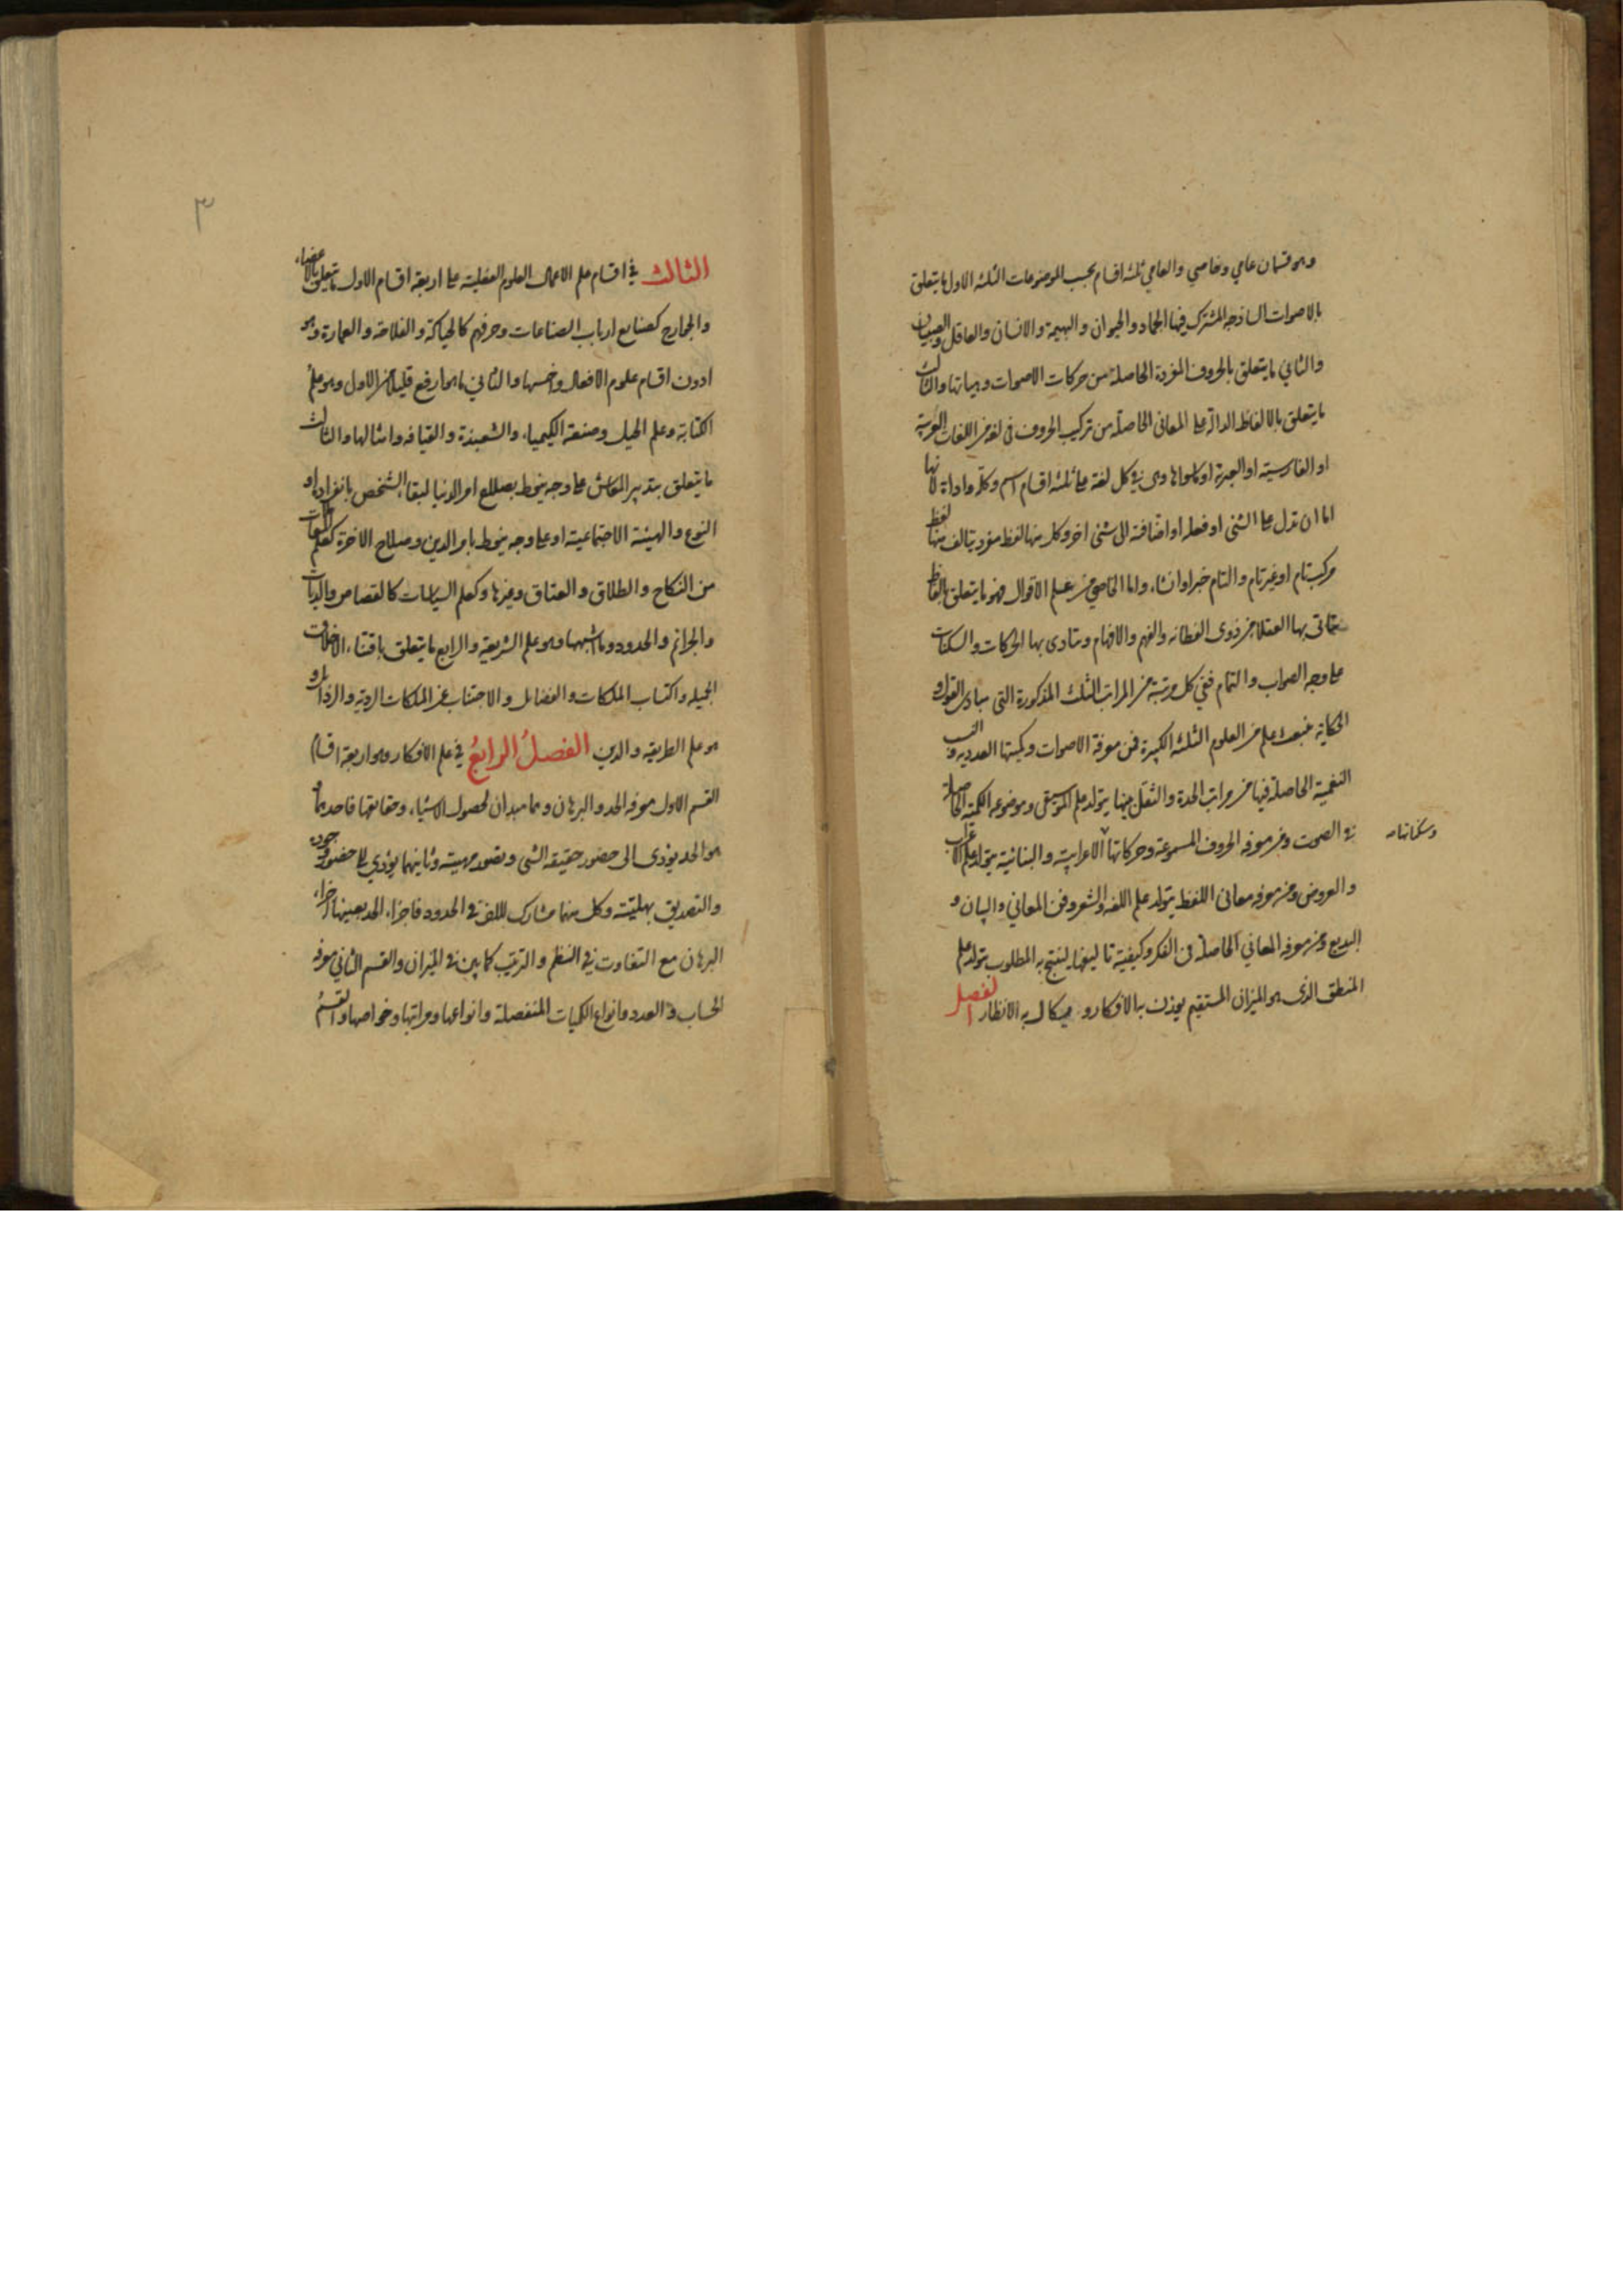 وهو قسمان عامي وخاصي والعامي ثلثه اقسام بحسب الموضوعات الثلثه الاول ما يتعلق
بالاصوات الساذجه المشترك فيها الجماد والحيوان والبهيمة والانسان والعاقل والصبيان
والثاني ما يتعلق بالحروف المفردة الحاصلة من حركات الاصوات وهيئاتها والثالث
ما يتعلق بالالفاظ الدالة على المعانى الحاصلة من تركيب الحروف فى لغة من اللغات العربية
او الفارسيته او العبرية او ما سواها وهى فى كل لغة على ثلثه اقسام اسم وكلمة واداة لانها
اما ان تدل على الشئ او فعله او اضافته الى شئ اخر وكل منها لفظ مفرد يتالف منها لفظ
مركب تام او غير تام والتام خبر او انشاء واما الخاصي من علم الاقوال فهو ما يتعلق بالفاظ
بها العقلا من ذوى الفطانه والفهم والافهام وتتادى بها الحركات والسكنات
على وجه الصواب والتمام ففي كل مرتبة من المراتب الثلث المذكورة التى مبادى القول و
الحكاية ينبعث علم من العلوم الثلثه الكبيرة فمن معرفة الاصوات وكميتها العدديه والنسب
النغمية الحاصلة فيها من مراتب الحدة والثقل منها يتولد علم الموسيقى وموضوعه الكمية الحاصلة
فى الصوت ومن معرفه الحروف المسموعة وحركاتها الاعرابية والبنائية يتولد علم الاعراب
وسكناتها
والعروض ومن معرفه معانى اللفظ يتولد علم اللغه والشعر وفن المعاني والبيان و
البديع ومن معرفه المعاني الحاصلة فى الفكر وكيفية تاليفها لينتج به المطلوب يتولد علم
المنطق الذى هو الميزان المستقيم يوزن به الافكار و يكال به الانظار الفصل
٣
الثالث في اقسام علم الاعمال العلوم الفعلية على اربعة اقسام الاول ما يتعلق بالاعضاء
والجوارح كصنايع ارباب الصناعات وحرفهم كالحياكة والفلاحه والعمارة وهو
ادون اقسام علوم الافعال واخسها والثاني ما هو ارفع قليلا من الاول وهو علم
الكتابة وعلم الحيل وصنعة الكيمياء والشعبذة والقيافه وامثالها والثالث
ما يتعلق بتدبير المعاش على وجه ينحفظ به امر الدنيا لبقاء الشخص بانفراده او
النوع والهيئة الاجتماعية او على وجه ينحفظ به امر الدين وصلاح الاخرة كعلم المعاملات
من النكاح والطلاق والعتاق وغيرها وكعلم السياسات كالقصاص والديات
والجرائم والحدود وما اشبهها وهو علم الشريعة والرابع ما يتعلق باقتناء الاخلاق
الجميله واكتساب الملكات والفضائل والاجتناب عن الملكات الردية والرذائل و
هو علم الطريقه والدين الفصل الرابع في علم الافكار وهو اربعة اقسام
القسم الاول معرفه الحد والبرهان وهما مبدان لحصول الاشياء وحقايقها فاحدهما
هو الحد يؤدى الى حضور حقيقه الشئ وتصور مهيته وثانيهما يؤدي الى حضور وجوده
والتصديق بهليته وكل منهما مشارك للاخر فى الحدود فاجزاء الحد بعينها اجزاء
البرهان مع التفاوت في النظم والترتيب كما بين فى الميزان والقسم الثاني معرفه
الحساب والعدد وانواع الكميات المنفصلة وانواعها ومراتبها وخواصها والقسم